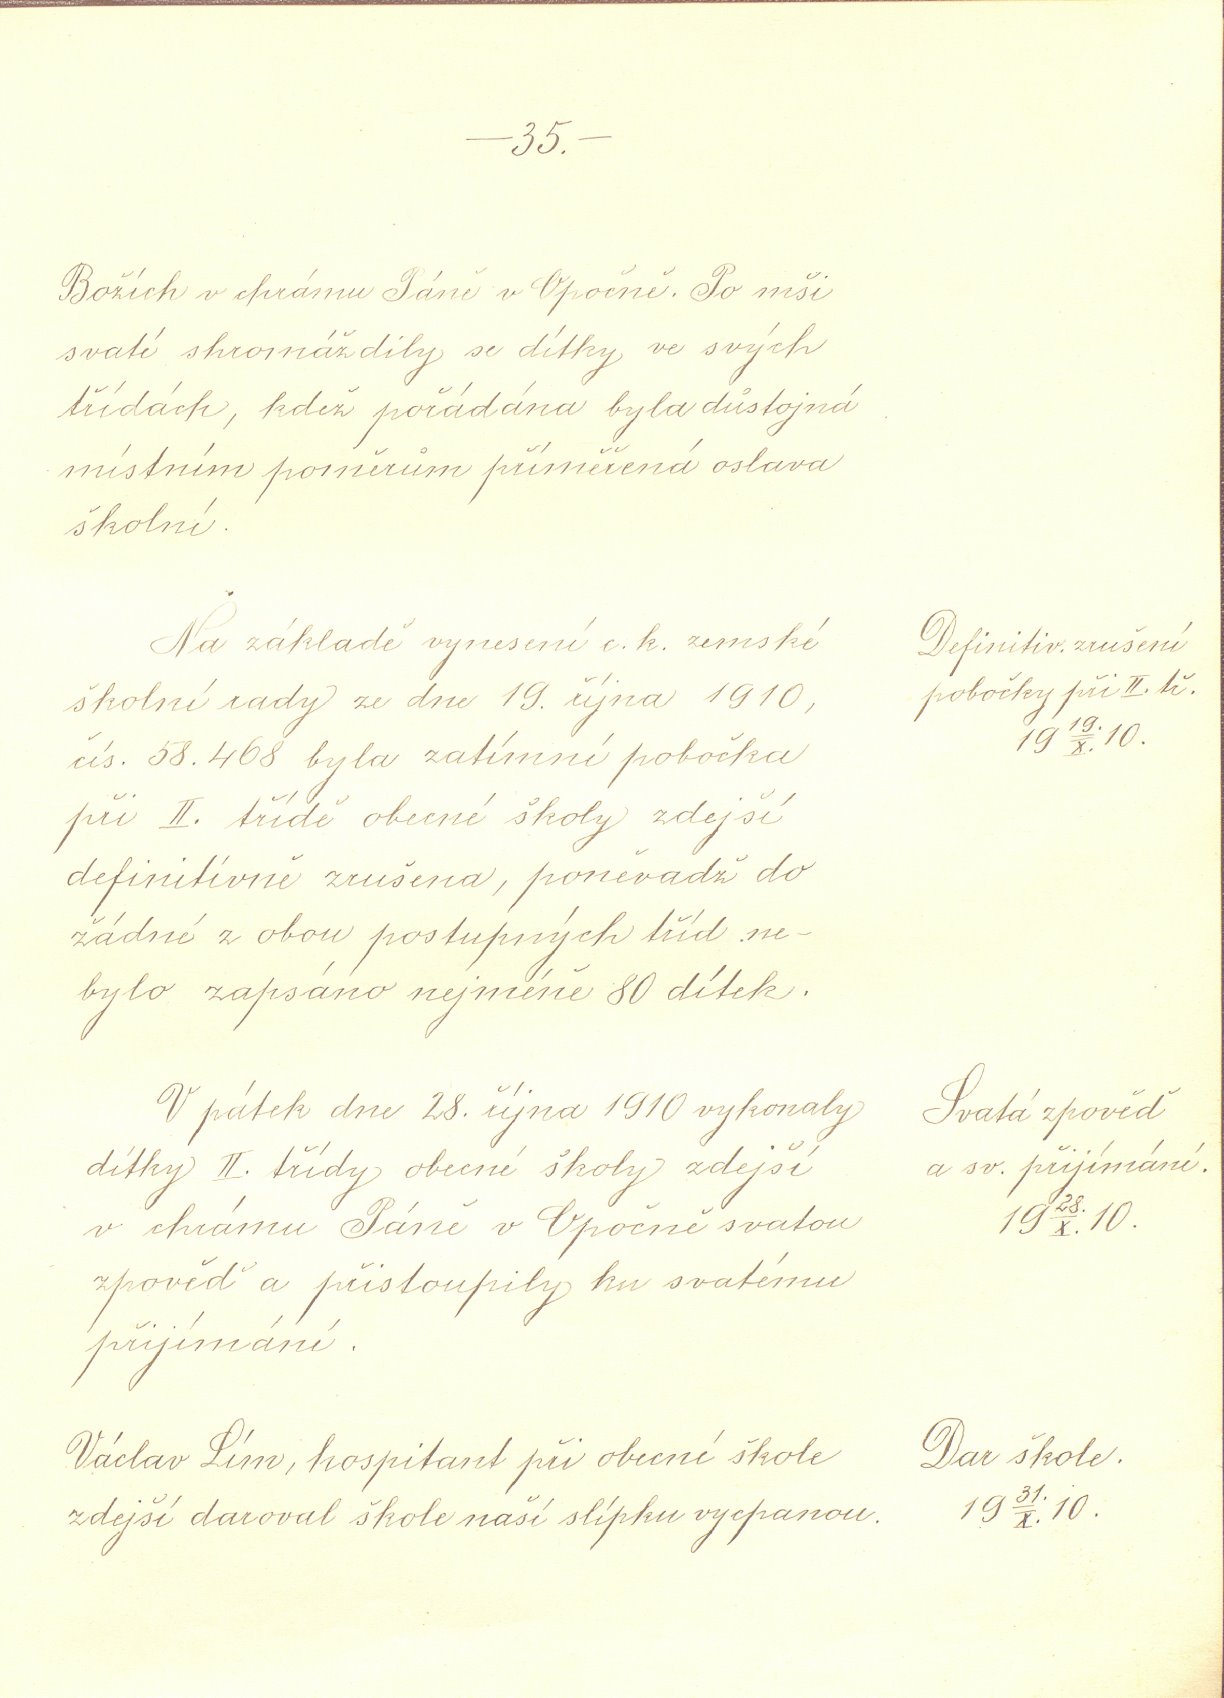 —35.—
Božích v chrámu Páně v Opočně. Po mši
svaté shromáždily se dítky ve svých
třídách, kdež pořádána byla důstojná
místním poměrům přiměřená oslava
školní.
Na základě vynesení c. k. zemské
školní rady ze dne 19. října 1910,
čís. 58.468 byla zatímní pobočka
při II. třídě obecné školy zdejší
definitivně zrušena, poněvadž do
žádné z obou postupných tříd ne-
bylo zapsáno nejméně 80 dítek.
Definitiv. zrušení
pobočky při II. tř.
19 19./X. 10.
V pátek dne 28. října 1910 vykonaly
dítky II. třídy obecné školy zdejší
v chrámu Páně v Opočně svatou
zpověď a přistoupily ku svatému
přijímání.
Svatá zpověď
a sv. přijímání.
19 28./X. 10.
Václav Lím, hospitant při obecné škole
zdejší daroval škole naší slípku vycpanou.
Dar škole.
19 31./X. 10.